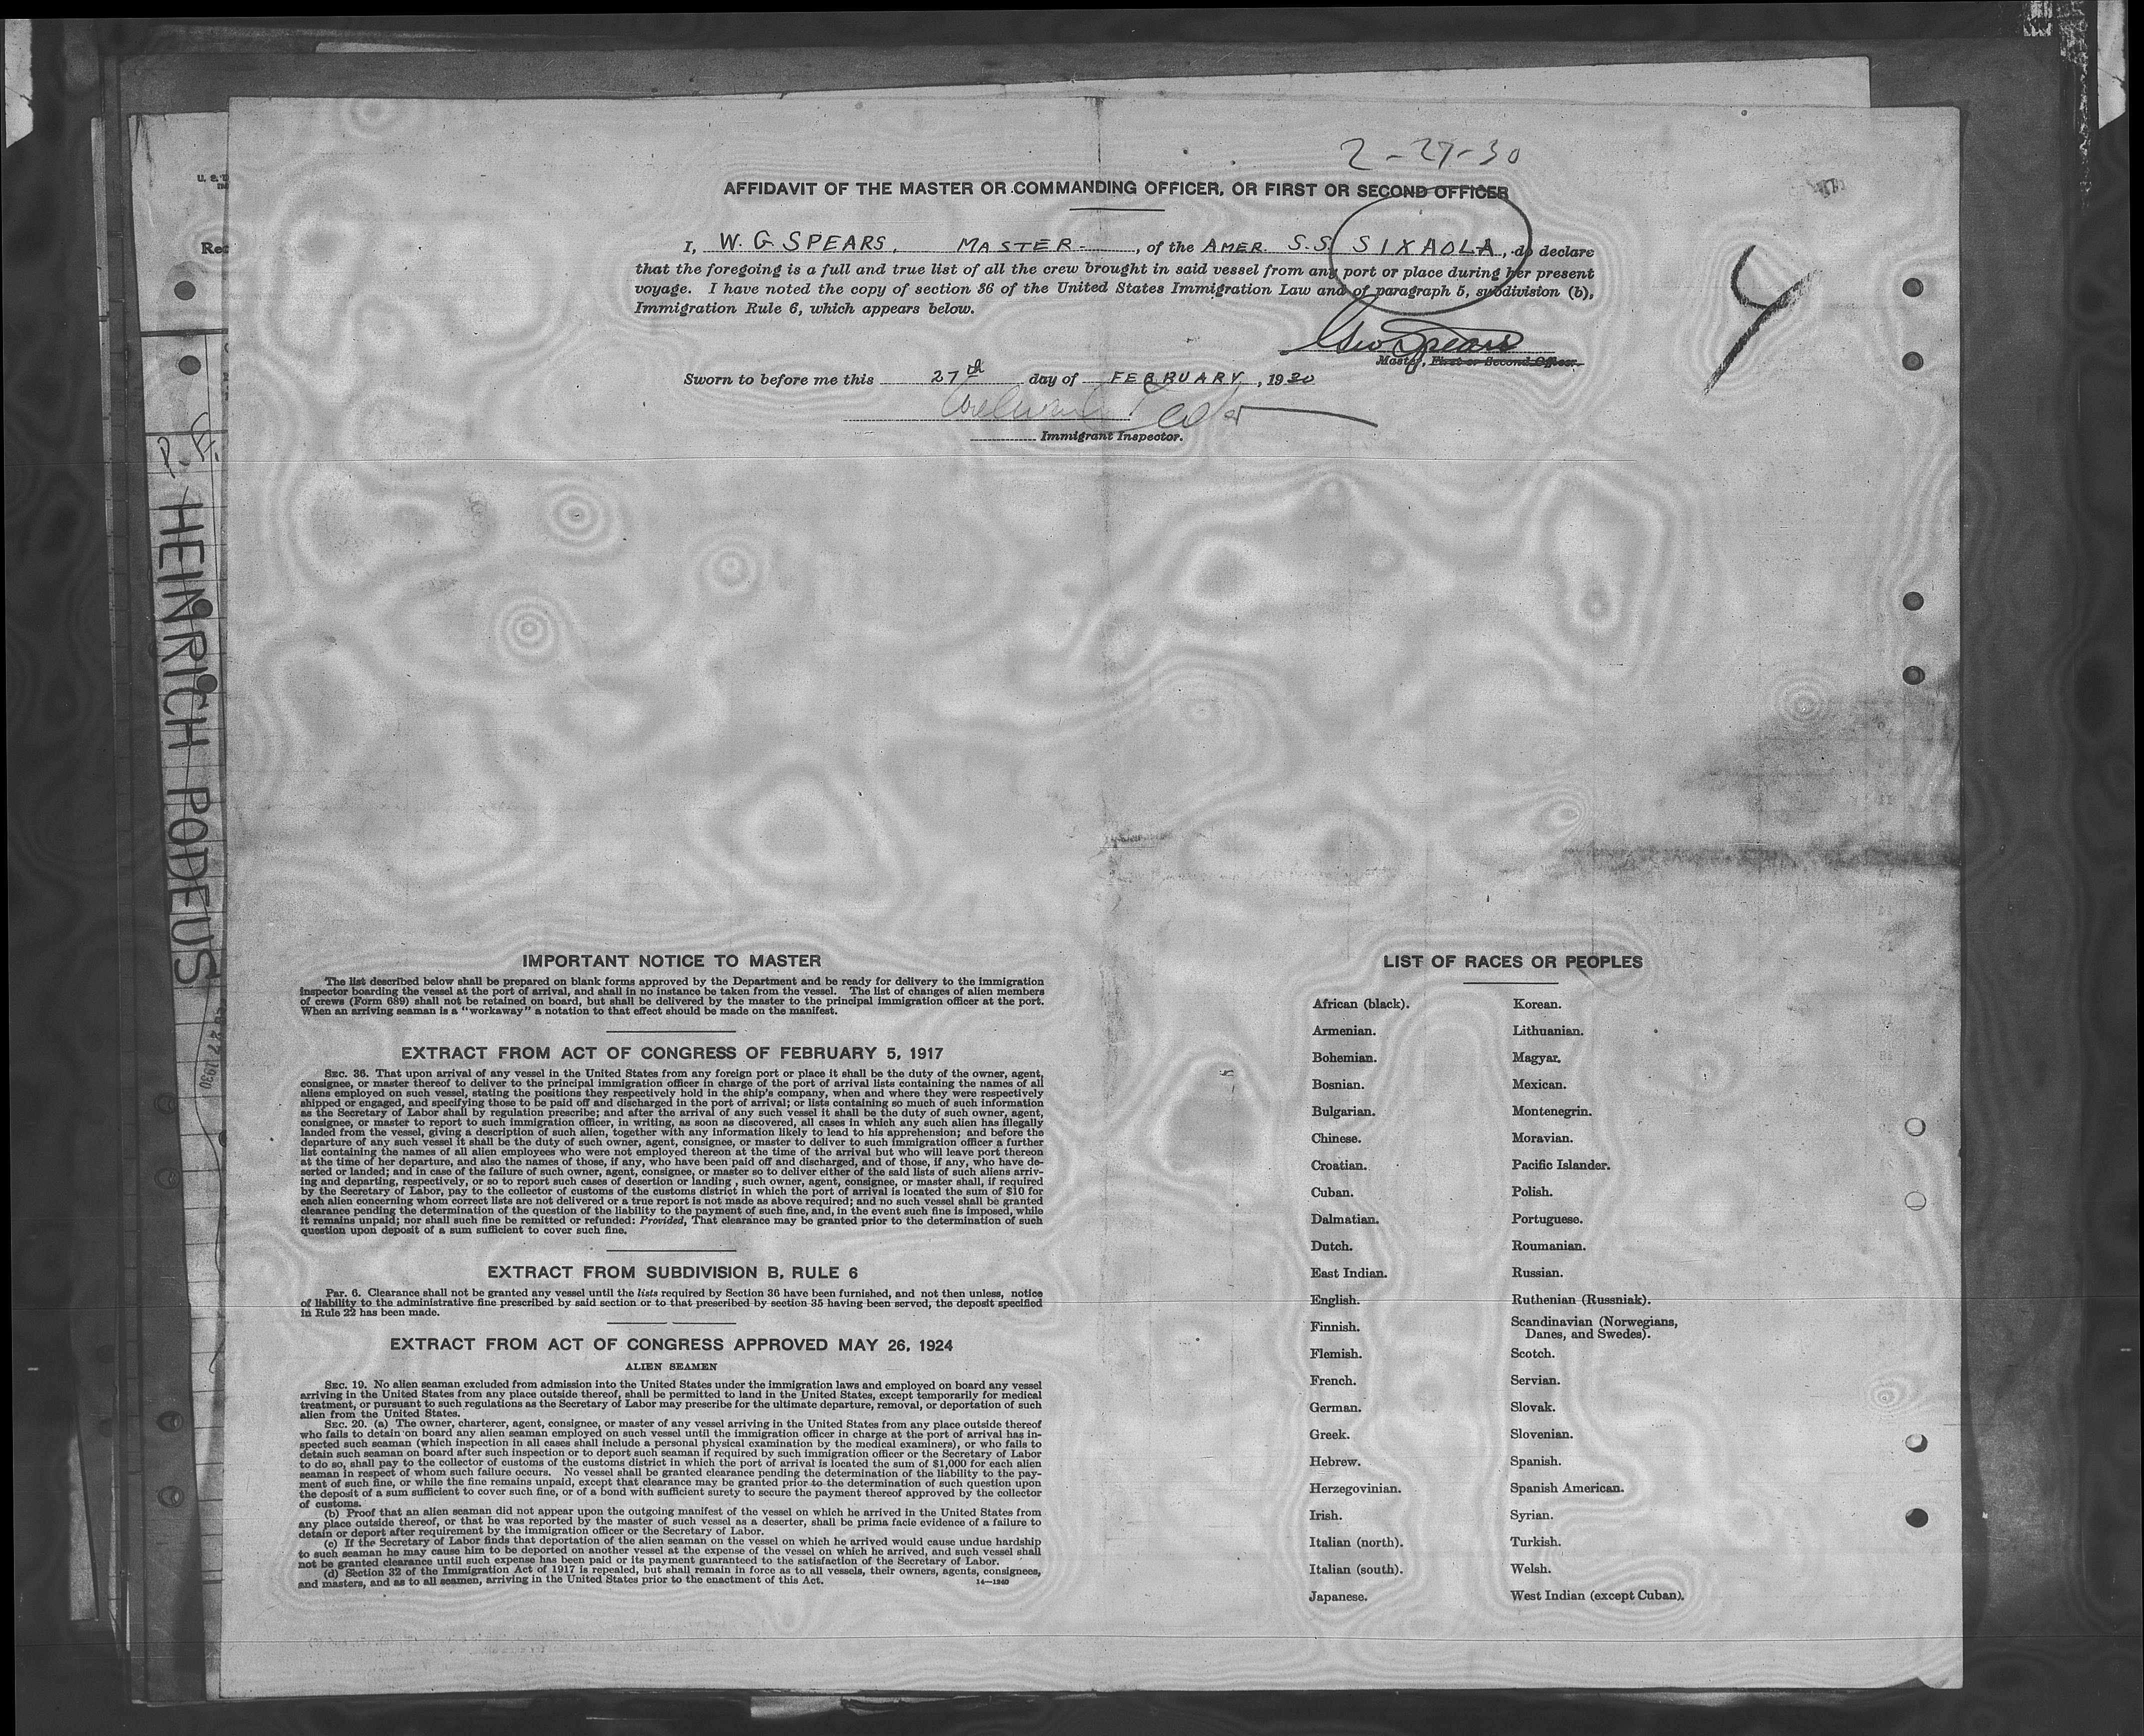 2-27-30
AFFIDAVIT OF THE MASTER OR COMMANDING OFFICER, OR FIRST OR SECOND OFFICER
I, W. G SPEARS, MASTER, of the AMER. S.S. SIXAOLA, do declare
that the foregoing is a full and true list of all the crew brought in said vessel from any port or place during her present
voyage. I have noted the copy of section 36 of the United States Immigration Law and of paragraph 5, subdivision (b),
Immigration Rule 6, which appears below.
Y
Spears
Master, First or Second Officer.
Sworn to before me this 27th day of FEBRUARY, 1930
Immigrant Inspector.
P. F.
HEINRICH PODEUS
IMPORTANT NOTICE TO MASTER
The list described below shall be prepared on blank forms approved by the Department and be ready for delivery to the immigration
inspector boarding the vessel at the port of arrival, and shall in no instance be taken from the vessel. The list of changes of alien members
of crews (Form 689) shall not be retained on board, but shall be delivered by the master to the principal immigration officer at the port.
When an arriving seaman is a "workaway" a notation to that effect should be made on the manifest.
EXTRACT FROM ACT OF CONGRESS OF FEBRUARY 5, 1917
SEC. 36. That upon arrival of any vessel in the United States from any foreign port or place it shall be the duty of the owner, agent,
consignee, or master thereof to deliver to the principal immigration officer in charge of the port of arrival lists containing the names of all
aliens employed on such vessel, stating the positions they respectively hold in the ship's company, when and where they were respectively
shipped or engaged, and specifying those to be paid off and discharged in the port of arrival; or lists containing so much of such information
as the Secretary of Labor shall by regulation prescribe; and after the arrival of any such vessel it shall be the duty of such owner, agent,
consignee, or master to report to such immigration officer, in writing, as soon as discovered, all cases in which any such alien has illegally
landed from the vessel, giving a description of such alien, together with any information likely to lead to his apprehension; and before the
departure of any such vessel it shall be the duty of such owner, agent, consignee, or master to deliver to such immigration officer a further
list containing the names of all alien employees who were not employed thereon at the time of the arrival but who will leave port thereon
at the time of her departure, and also the names of those, if any, who have been paid off and discharged, and of those, if any, who have de-
serted or landed; and in case of the failure of such owner, agent, consignee, or master so to deliver either of the said lists of such aliens arriv-
ing and departing, respectively, or so to report such cases of desertion or landing , such owner, agent, consignee, or master shall, if required
by the Secretary of Labor, pay to the collector of customs of the customs district in which the port of arrival is located the sum of $10 for
each alien concerning whom correct lists are not delivered or a true report is not made as above required; and no such vessel shall be granted
clearance pending the determination of the question of the liability to the payment of such fine, and, in the event such fine is imposed, while
it remains unpaid; nor shall such fine be remitted or refunded: Provided, That clearance may be granted prior to the determination of such
question upon deposit of a sum sufficient to cover such fine.
EXTRACT FROM SUBDIVISION B, RULE 6
Par. 6. Clearance shall not be granted any vessel until the lists required by Section 36 have been furnished, and not then unless, notice
of liability to the administrative fine prescribed by said section or to that prescribed by section 35 having been served, the deposit specified
in Rule 22 has been made.
EXTRACT FROM ACT OF CONGRESS APPROVED MAY 26, 1924
ALIEN SEAMEN
SEC. 19. No alien seaman excluded from admission into the United States under the immigration laws and employed on board any vessel
arriving in the United States from any place outside thereof, shall be permitted to land in the United States, except temporarily for medical
treatment, or pursuant to such regulations as the Secretary of Labor may prescribe for the ultimate departure, removal, or deportation of such
alien from the United States.
SEC. 20. (a) The owner, charterer, agent, consignee, or master of any vessel arriving in the United States from any place outside thereof
who fails to detain on board any alien seaman employed on such vessel until the immigration officer in charge at the port of arrival has in-
spected such seaman (which inspection in all cases shall include a personal physical examination by the medical examiners), or who fails to
detain such seaman on board after such inspection or to deport such seaman if required by such immigration officer or the Secretary of Labor
to do so, shall pay to the collector of customs of the customs district in which the port of arrival is located the sum of $1,000 for each alien
seaman in respect of whom such failure occurs. No vessel shall be granted clearance pending the determination of the liability to the pay-
ment of such fine, or while the fine remains unpaid, except that clearance may be granted prior to the determination of such question upon
the deposit of a sum sufficient to cover such fine, or of a bond with sufficient surety to secure the payment thereof approved by the collector
of customs.
(b) Proof that an alien seaman did not appear upon the outgoing manifest of the vessel on which he arrived in the United States from
any place outside thereof, or that he was reported by the master of such vessel as a deserter, shall be prima facie evidence of a failure to
detain or deport after requirement by the immigration officer or the Secretary of Labor.
(c) If the Secretary of Labor finds that deportation of the alien seaman on the vessel on which he arrived would cause undue hardship
to such seaman he may cause him to be deported on another vessel at the expense of the vessel on which he arrived, and such vessel shall
not be granted clearance until such expense has been paid or its payment guaranteed to the satisfaction of the Secretary of Labor.
(d) Section 32 of the Immigration Act of 1917 is repealed, but shall remain in force as to all vessels, their owners, agents, consignees,
and masters, and as to all seamen, arriving in the United States prior to the enactment of this Act. 14—1240
LIST OF RACES OR PEOPLES
African (black).
Armenian.
Bohemian.
Bosnian.
Bulgarian.
Chinese.
Croatian.
Cuban.
Dalmatian.
Dutch.
East Indian.
English.
Finnish.
Flemish.
French.
German.
Greek.
Hebrew.
Herzegovinian.
Irish.
Italian (north).
Italian (south).
Japanese.
Korean.
Lithuanian.
Magyar.
Mexican.
Montenegrin.
Moravian.
Pacific Islander.
Polish.
Portuguese.
Roumanian.
Russian.
Ruthenian (Russniak).
Scandinavian (Norwegians,
Danes, and Swedes).
Scotch.
Servian.
Slovak.
Slovenian.
Spanish.
Spanish American.
Syrian.
Turkish.
Welsh.
West Indian (except Cuban).